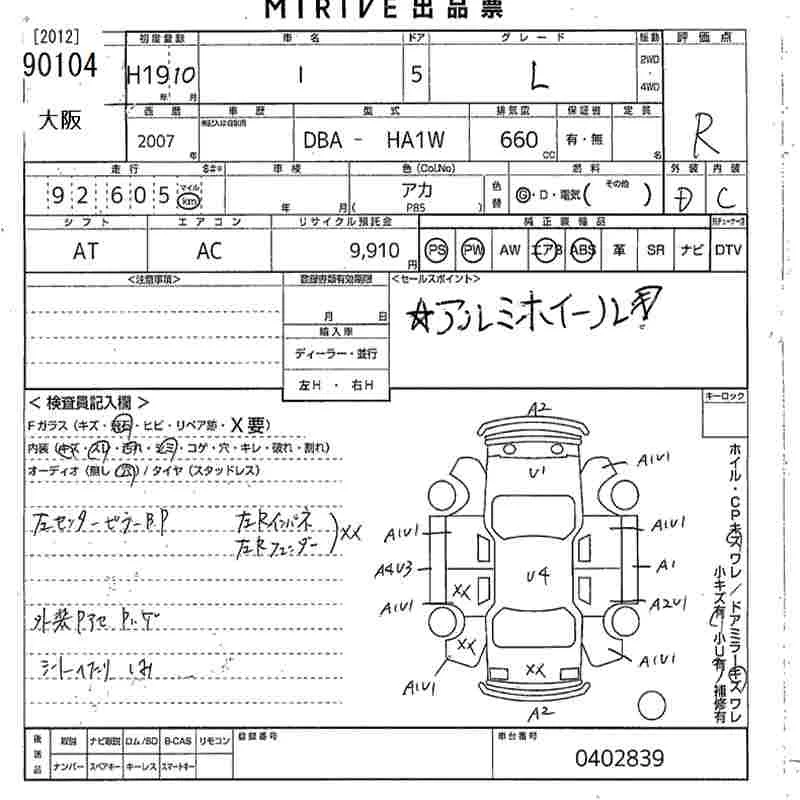 MIRIVE出品票
[2012]
90104
大阪
初度登録
H19 10
年 月
車 名
I
ドア
5
グレード
L
駆動
2WD
・
4WD
評価点
R
西暦
2007
年
車 歴
型 式
DBA - HA1W
排気量
660
CC
保証書
有・無
定員
名
外装 内装
D C
走 行
92605
マイル
km
車 検
年 月
色 (Col.No)
アカ
( P85 )
色替
燃 料
G・D・電気( その他 )
シフト
AT
エアコン
AC
リサイクル預託金
9,910
円
純正装備品
PS PW AW エアB ABS 革 SR ナビ DTV
<注意事項>
月 日
輸入車
ディーラー・並行
左H ・ 右H
<セールスポイント>
☆アルミホイール
キーロック
< 検査員記入欄 >
Fガラス (キズ・飛石・ヒビ・リペア跡・X要)
内装 (キズ・スリ・汚れ・シミ・コゲ・穴・キレ・破れ・割れ)
オーディオ (無し・穴) / タイヤ (スタッドレス)
左センターピラーBP
左Rインパネ
左Rフェンダー
XX
外装
A2
U1
A1U1
A1U1
A1U1
A4U3
U4
A1
XX
A1U1
A2U1
XX
A1U1
A1U1
XX
A2
ホイル・CPキズワレ/ドアミラーキズワレ
小キズ有/小U有/補修有
後送品
取説 ナビ取説 ロム/SD B-CAS リモコン
ナンバー スペアキー キーレス スマートキー
登録番号
車台番号
0402839